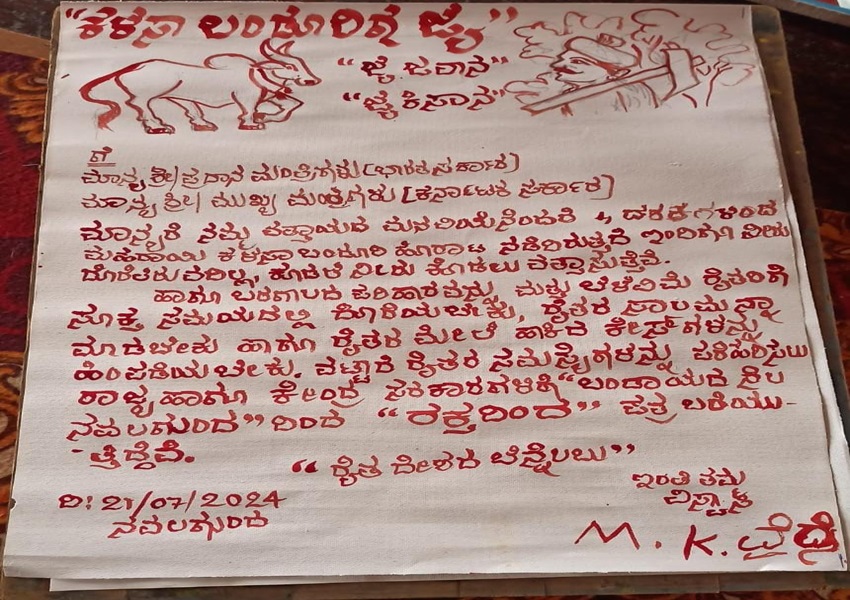 "ಕಳಸಾ ಬಂಡೂರಿಗೆ ಜೈ"
"ಜೈ ಜವಾನ"
"ಜೈ ಕಿಸಾನ"
ಗೆ
ಮಾನ್ಯ ಶ್ರೀ ಪ್ರಧಾನ ಮಂತ್ರಿಗಳು (ಭಾರತ ಸರ್ಕಾರ)
ಮಾನ್ಯ ಶ್ರೀ ಮುಖ್ಯ ಮಂತ್ರಿಗಳು (ಕರ್ನಾಟಕ ಸರ್ಕಾರ)
ಮಾನ್ಯರೆ ನಮ್ಮ ಒತ್ತಾಯದ ಮನವಿಯೆನೆಂದರೆ 4 ದಶಕಗಳಿಂದ
ಮಹದಾಯಿ ಕಳಸಾ ಬಂಡೂರಿ ಹೋರಾಟ ನಡೆದಿರುತ್ತದೆ ಇಂದಿಗೂ ನೀರು
ದೊರೆತಿರುವದಿಲ್ಲ, ಕೂಡಲೆ ನೀರು ಕೊಡಲು ಒತ್ತಾಸುತ್ತೆವೆ.
ಹಾಗೂ ಬರಗಾಲದ ಪರಿಹಾರವನ್ನು ಮತ್ತು ಬೆಳೆವಿಮೆ ರೈತರಿಗೆ
ಸೂಕ್ತ ಸಮಯದಲ್ಲಿ ದೊರೆಯಬೇಕು, ರೈತರ ಸಾಲಮನ್ನಾ
ಮಾಡಬೇಕು ಹಾಗೂ ರೈತರ ಮೇಲೆ ಹಾಕಿದ ಕೇಸ್‌ಗಳನ್ನು
ಹಿಂಪಡೆಯಬೇಕು. ಒಟ್ಟಾರೆ ರೈತರ ಸಮಸ್ಯೆಗಳನ್ನು ಪರಿಹರಿಸಲು
ರಾಜ್ಯ ಹಾಗೂ ಕೇಂದ್ರ ಸರಕಾರಗಳಿಗೆ "ಬಂಡಾಯದ ನೆಲ
ನವಲಗುಂದ" ದಿಂದ "ರಕ್ತದಿಂದ" ಪತ್ರ ಬರೆಯು-
-ತ್ತಿದ್ದೆವೆ.
"ರೈತ ದೇಶದ ಬೆನ್ನೆಲಬು"
ಇಂತಿ ತಮ್ಮ
ವಿಸ್ವಾಸಿ
ದಿ: 21/07/2024
ನವಲಗುಂದ
M. K.